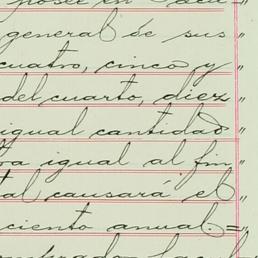 posee en
general de sus "
cuatro, cinco y "
del cuarto, diez "
igual cantidad "
ra igual al fin "
tal causará el "
ciento anual.="